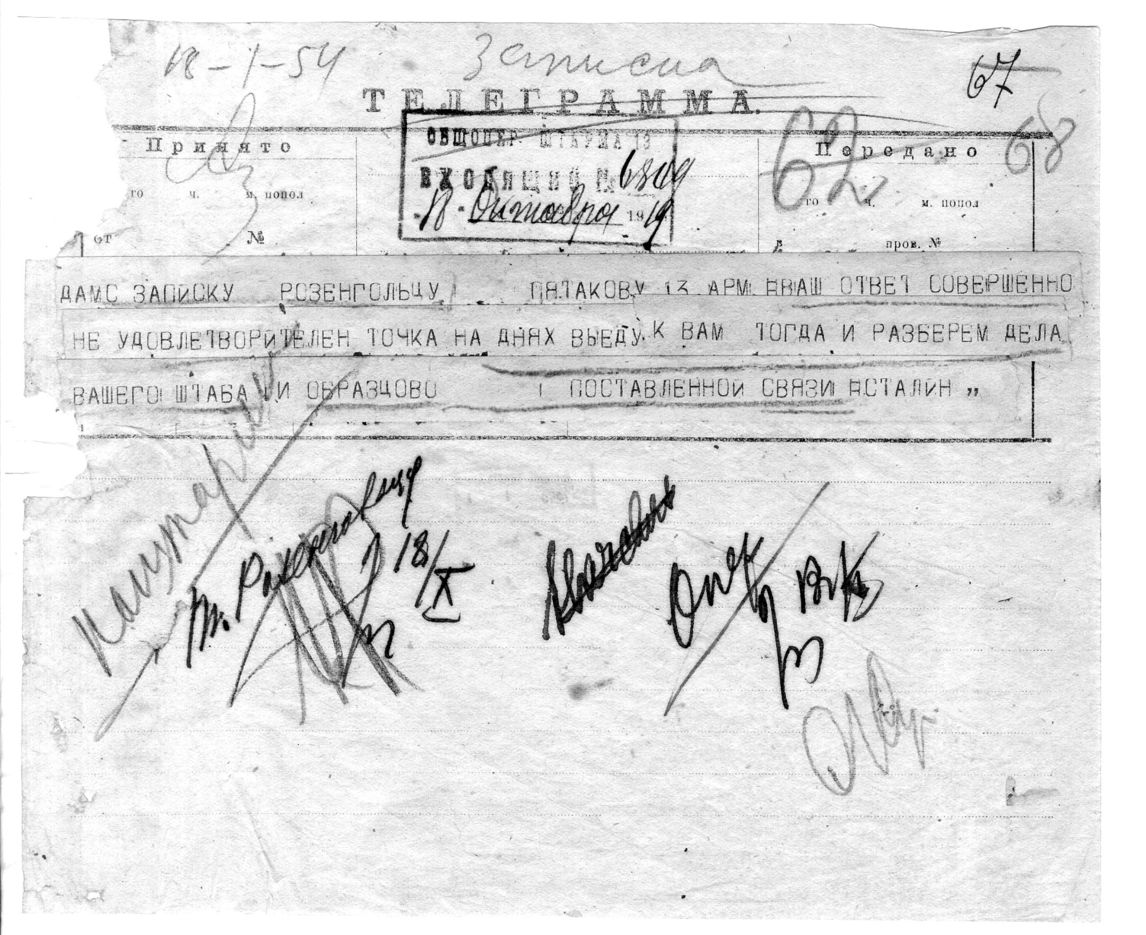 18-1-54 Записка 67
ТЕЛЕГРАММА.
ОБЩОПЕР ШТАРМА 13
62 68
Принято
Передано
ВХОДЯЩИЙ № 6809
го ч. м. попол
го ч. м. попол
18 Октября 1919
от №
пров. №
ДАМС ЗАПИСКУ РОЗЕНГОЛЬЦУ ПЯТАКОВУ 13 АРМ ВАШ ОТВЕТ СОВЕРШЕННО
НЕ УДОВЛЕТВОРИТЕЛЕН ТОЧКА НА ДНЯХ ВЫЕДУ К ВАМ ТОГДА И РАЗБЕРЕМ ДЕЛА
ВАШЕГО ШТАБА И ОБРАЗЦОВО ПОСТАВЛЕННОЙ СВЯЗИ СТАЛИН „
т. Розенгольцу
18/X